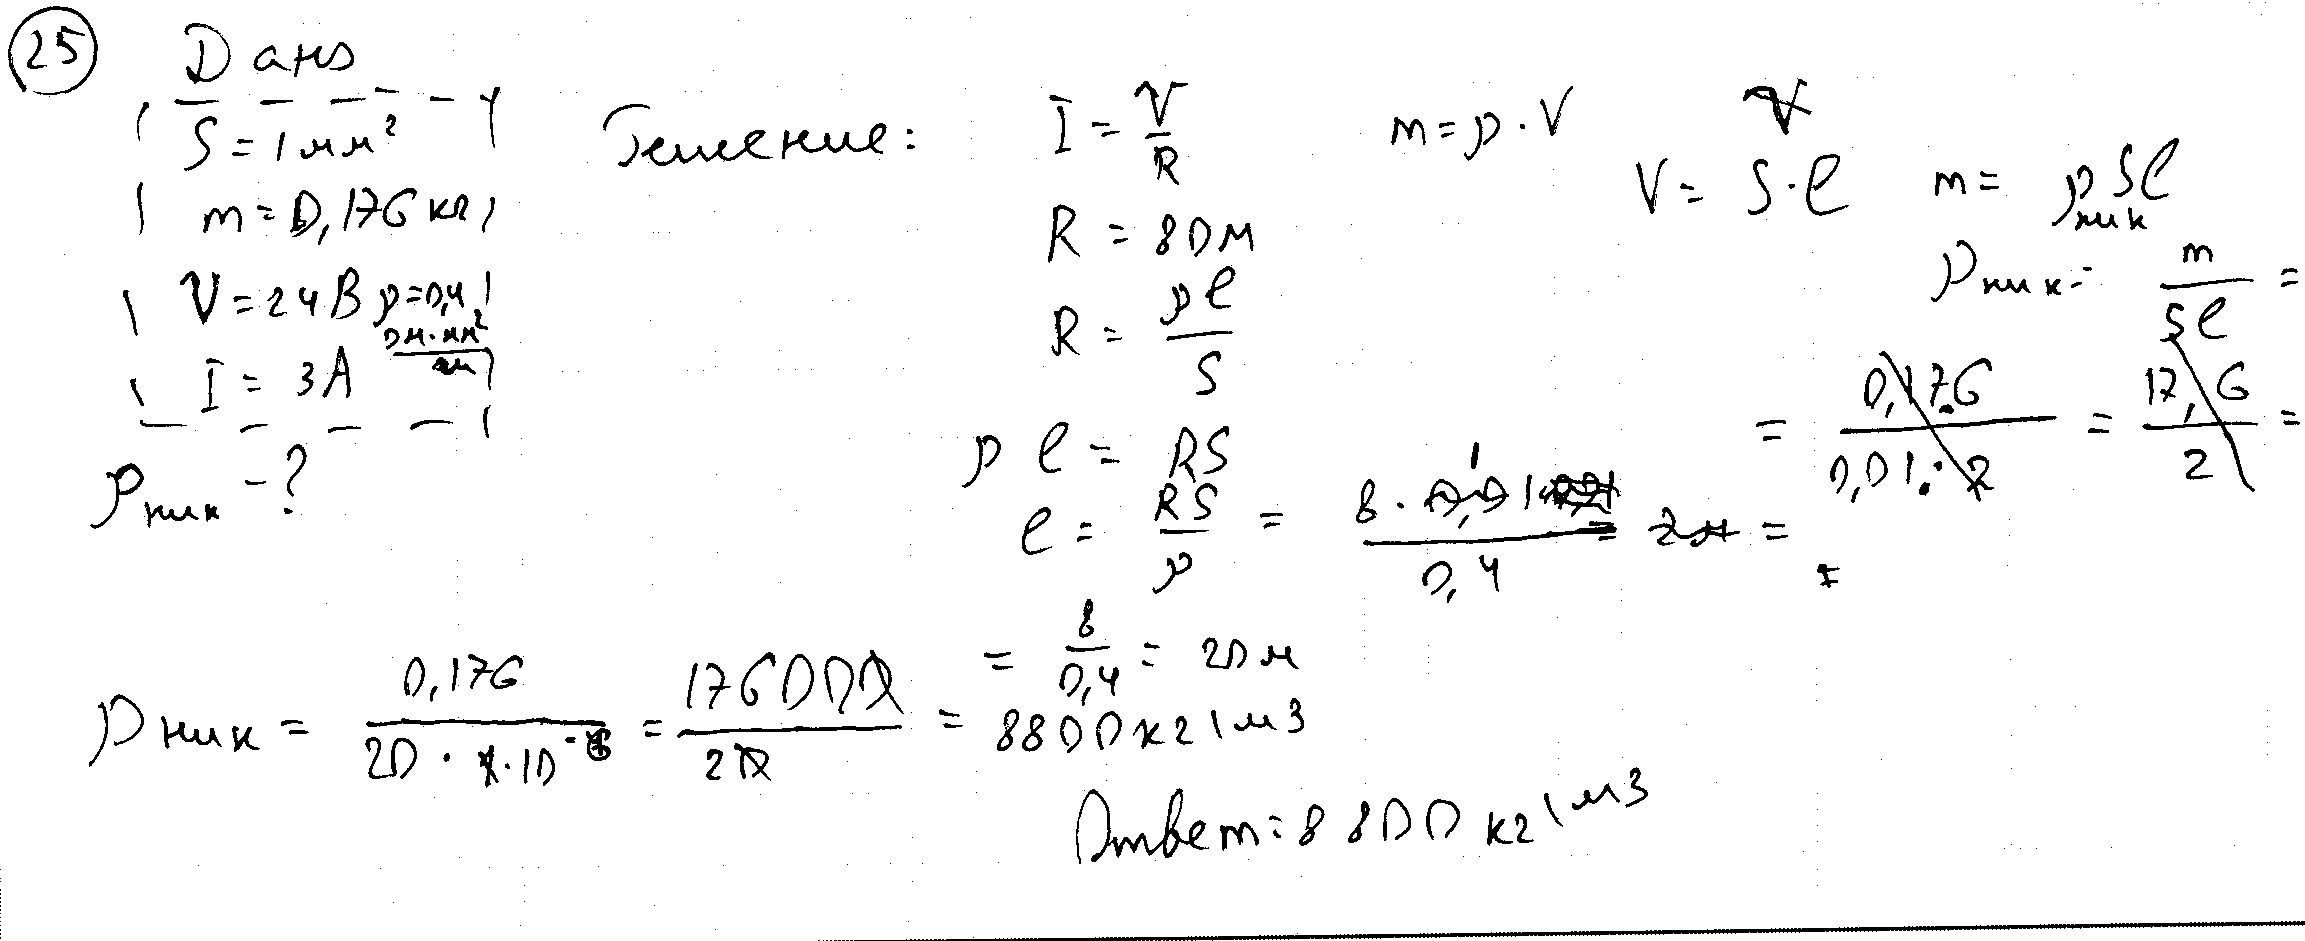 25 Дано
S = 1 мм²
m = 0,176 кг
U = 24 В ρ = 0,4 Ом·мм²/м
I = 3А
ρник - ?
Решение:
I = U/R
R = 8 Ом
R = ρl/S
ρl = RS
l = RS/ρ = 8·1/0,4 =
= 8/0,4 = 20 м
m = ρ·V
V = S·l
m = ρник Sl
ρник = m/Sl =
ρник = 0,176/20·1·10⁻⁶ = 176000/20 = 8800 кг/м3
Ответ: 8800 кг/м3